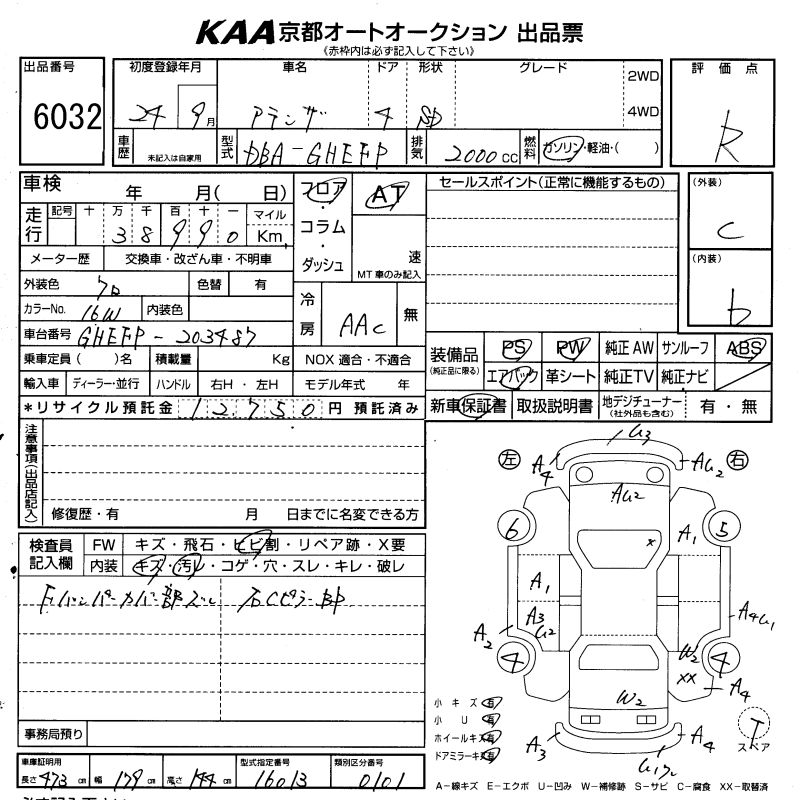 KAA 京都オートオークション 出品票
《赤枠内は必ず記入して下さい》
出品番号
6032
初度登録年月 車名 ドア 形状 グレード
24 9月 アテンザ 4 SD
2WD
4WD
評価点
R
車歴 未記入は自家用 型式 DBA-GHEFP 排気 2000cc 燃料 ガソリン・軽油・( )
車検 年 月( 日)
走行 記号 十 万 千 百 十 一 マイル
3 8 9 9 0 Km
メーター歴 交換車・改ざん車・不明車
外装色 クロ 色替 有
カラーNo. 16W 内装色
車台番号 GHEFP-203487
乗車定員( )名 積載量 Kg NOX 適合・不適合
輸入車 ディーラー・並行 ハンドル 右H・左H モデル年式 年
*リサイクル預託金 12,750円 預託済み
フロア・コラム・ダッシュ
AT
速
MT車のみ記入
冷房 AAC 無
セールスポイント(正常に機能するもの)
(外装)
C
(内装)
b
装備品 PS PW 純正AW サンルーフ ABS
(純正品に限る) エアバック 革シート 純正TV 純正ナビ
新車保証書 取扱説明書 地デジチューナー(社外品も含む) 有・無
注意事項(出品店記入)
修復歴・有 月 日までに名変できる方
検査員記入欄 FW キズ・飛石・ヒビ割・リペア跡・X要
内装 キズ・汚レ・コゲ・穴・スレ・キレ・破レ
Fバンパーカバー部ズレ 右Cピラー部P
事務局預り
車庫証明用 型式指定番号 類別区分番号
長さ 473cm 幅 179cm 高さ 144cm 16013 0101
U3
左 A4 AU2 右
AU2
6 × A1 5
A1
A3
U2 A4U1
A2
4 W2 4
XX
W2 A4
A3 A4
小キズ 有
小U 有
ホイールキズ 有
ドアミラーキズ 有
T
スペア
A-線キズ E-エクボ U-凹み W-補修跡 S-サビ C-腐食 XX-取替済